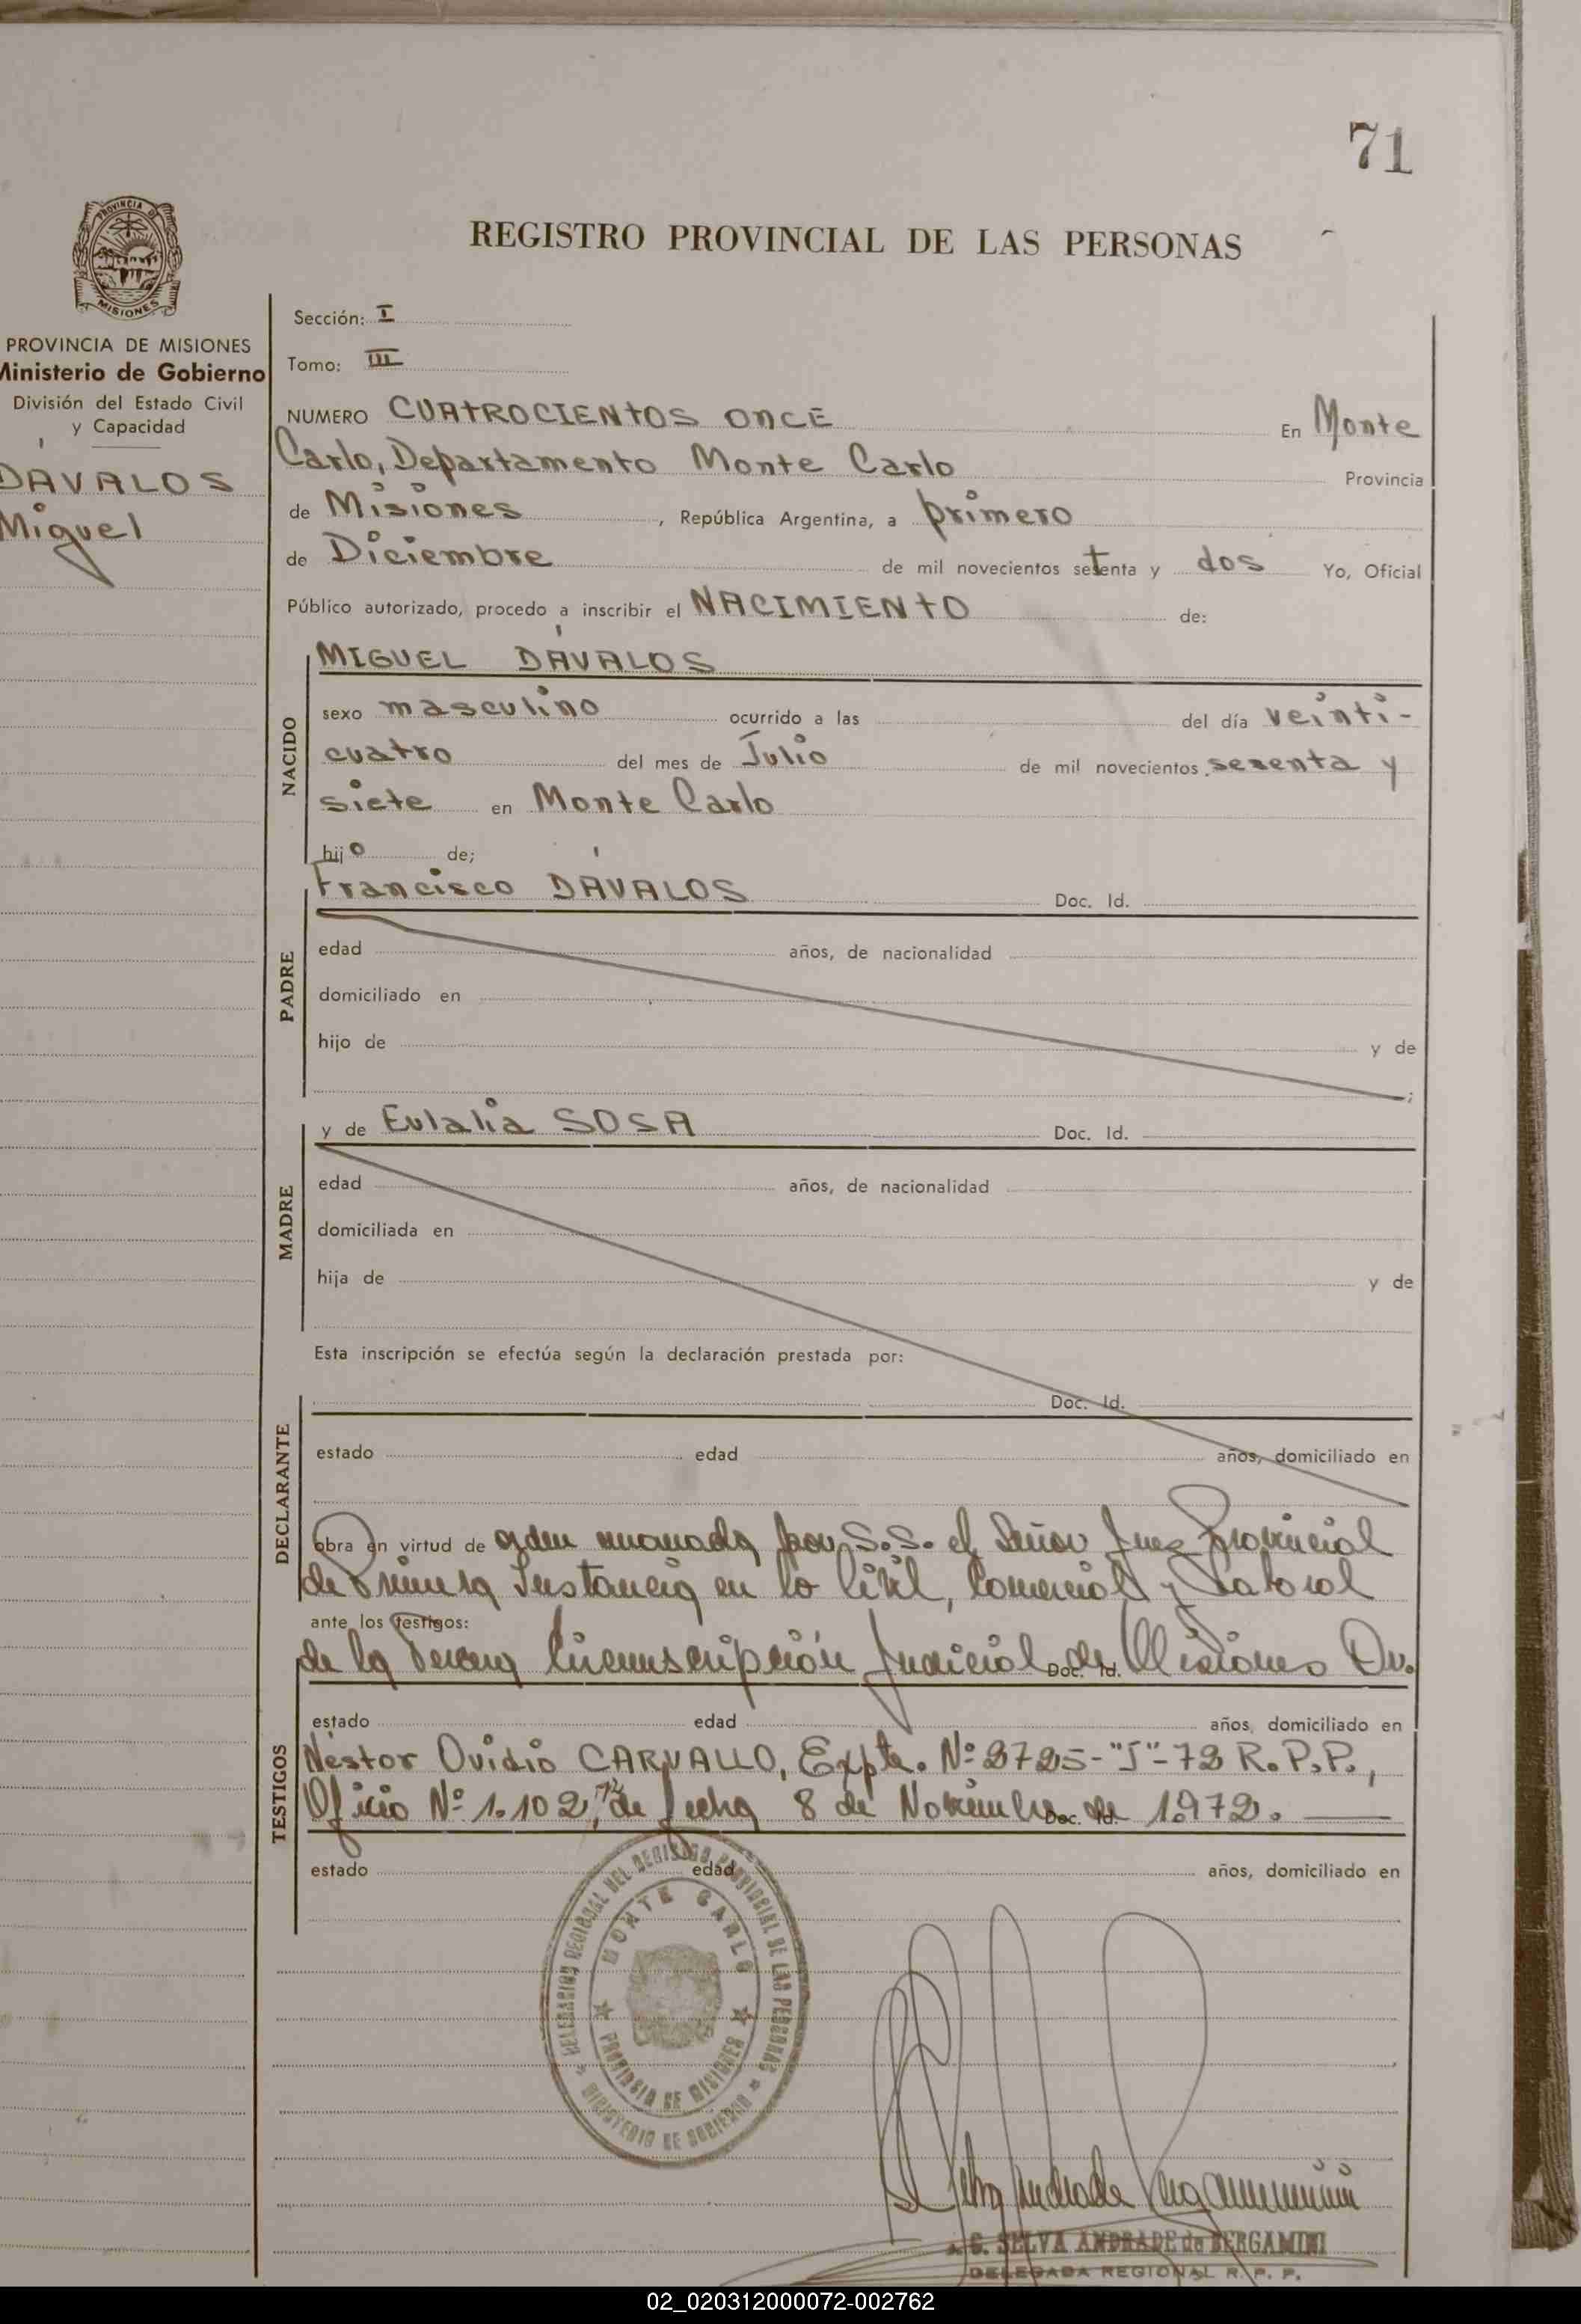 71
REGISTRO PROVINCIAL DE LAS PERSONAS
PROVINCIA DE MISIONES
PROVINCIA DE MISIONES
Ministerio de Gobierno
División del Estado Civil
y Capacidad
DÁVALOS
Miguel
Sección: I
Tomo: III
NUMERO CUATROCIENTOS ONCE En Monte
Carlo, Departamento Monte Carlo Provincia
de Misiones, República Argentina, a primero
de Diciembre de mil novecientos setenta y dos Yo, Oficial
Público autorizado, procedo a inscribir el NACIMIENTO de:
NACIDO
MIGUEL DÁVALOS
sexo masculino ocurrido a las del día veinti-
cuatro del mes de Julio de mil novecientos sesenta y
siete en Monte Carlo
hijo de;
PADRE
Francisco DÁVALOS Doc. Id.
edad años, de nacionalidad
domiciliado en
hijo de y de
;
MADRE
y de Eulalia SOSA Doc. Id.
edad años, de nacionalidad
domiciliada en
hija de y de
Esta inscripción se efectúa según la declaración prestada por:
DECLARANTE
Doc. Id.
estado edad años, domiciliado en
obra en virtud de orden emanada por S.S. el Señor Juez Provincial
de Primera Instancia en lo Civil, Comercial y Laboral
ante los testigos:
de la Tercera Circunscripción Judicial de Misiones Dr.
Doc. Id.
TESTIGOS
estado edad años, domiciliado en
Néstor Ovidio CARVALLO, Expte. Nº 2725-"J"-72 R.P.P.,
Oficio Nº 1.102/72, de fecha 8 de Noviembre de 1.972.
Doc. Id.
estado edad años, domiciliado en
DELEGACION REGIONAL DEL REGISTRO PROVINCIAL DE LAS PERSONAS
MONTE CARLO
PROVINCIA DE MISIONES
MINISTERIO DE GOBIERNO
S. SELVA ANDRADE de BERGAMINI
DELEGADA REGIONAL R. P. P.
02_020312000072-002762